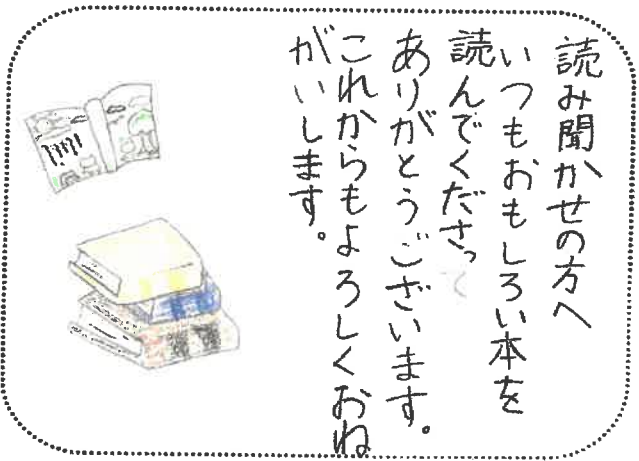 読み聞かせの方へ
いつもおもしろい本を
読んでくださって
ありがとうございます。
これからもよろしくおね
がいします。